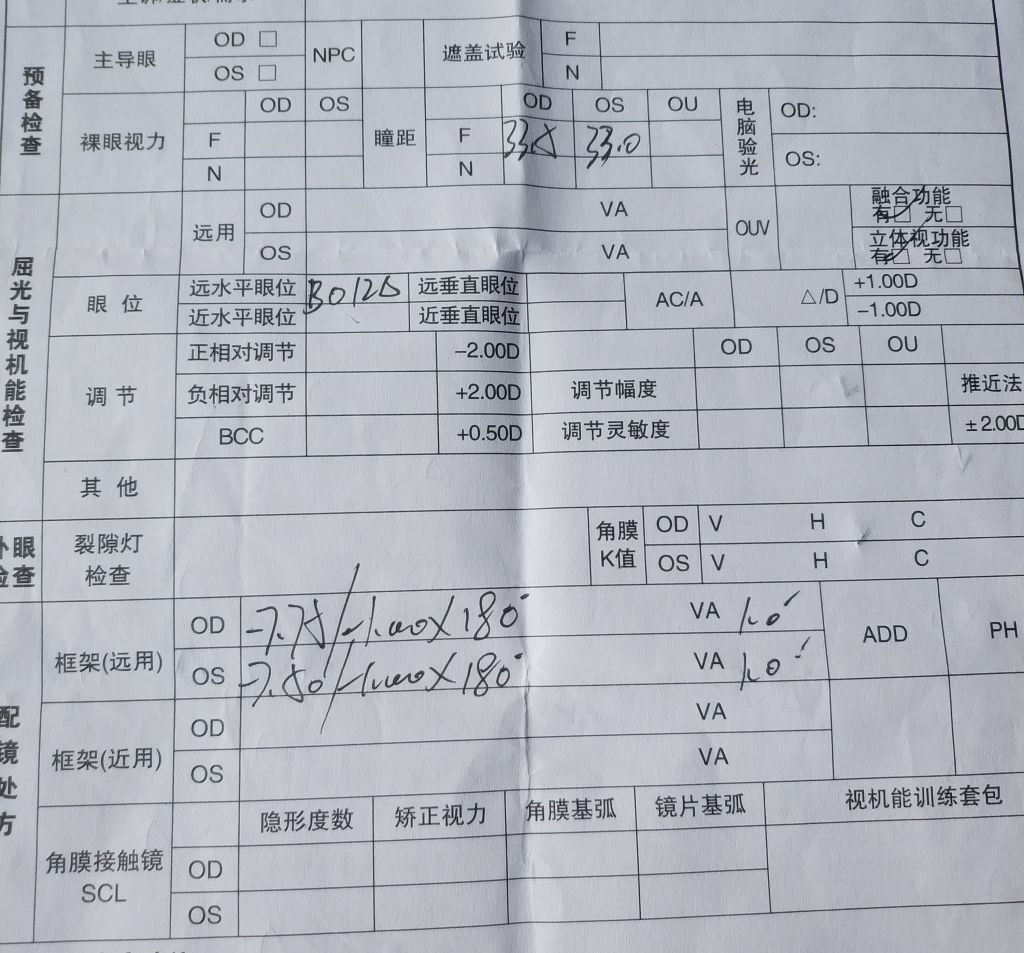 预备检查
主导眼 OD □ NPC 遮盖试验 F
OS □ N
裸眼视力 OD OS 瞳距 OD OS OU 电脑验光 OD:
F F 33.5 33.0
N N OS:
屈光与视机能检查
远用 OD VA OUV 融合功能
有☑ 无□
OS VA 立体视功能
有☑ 无□
眼位 远水平眼位 BO12Δ 远垂直眼位 AC/A △/D +1.00D
近水平眼位 近垂直眼位 −1.00D
调节 正相对调节 −2.00D OD OS OU
负相对调节 +2.00D 调节幅度 推近法
BCC +0.50D 调节灵敏度 ±2.00D
其他
外眼检查 裂隙灯检查 角膜K值 OD V H C
OS V H C
配镜处方
框架(远用) OD -7.75/-1.00X180° VA 1.0 ADD PH
OS -7.50/-1.00X180° VA 1.0
框架(近用) OD VA
OS VA
角膜接触镜 SCL 隐形度数 矫正视力 角膜基弧 镜片基弧 视机能训练套包
OD
OS